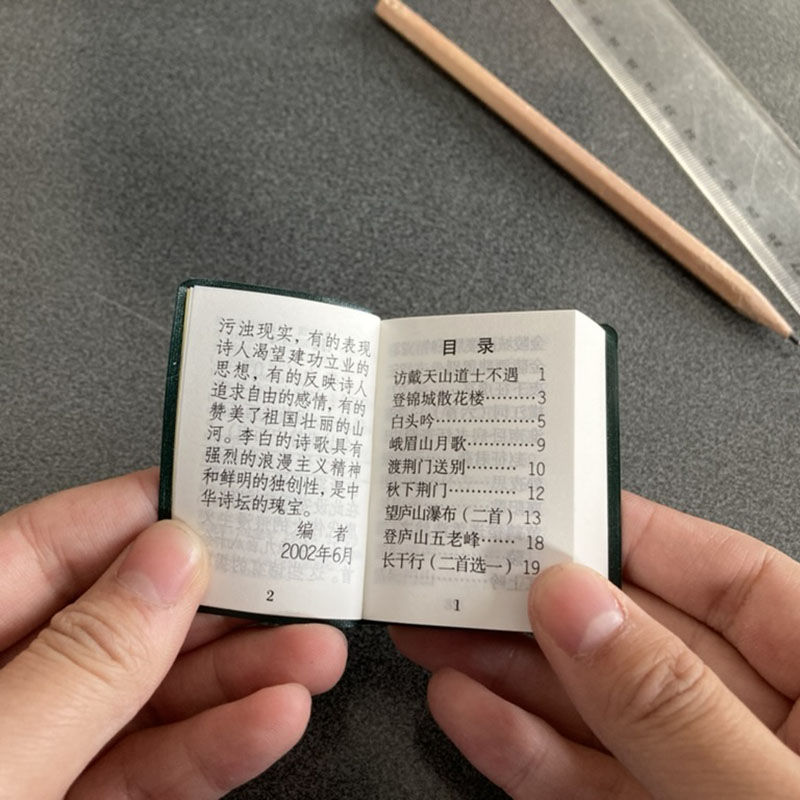 污浊现实，有的表现
诗人渴望建功立业的
思想，有的反映诗人
追求自由的感情，有的
赞美了祖国壮丽的山
河。李白的诗歌具有
强烈的浪漫主义精神
和鲜明的独创性，是中
华诗坛的瑰宝。
编 者
2002年6月
2
目 录
访戴天山道士不遇 1
登锦城散花楼………3
白头吟…………5
峨眉山月歌…………9
渡荆门送别……… 10
秋下荆门………… 12
望庐山瀑布（二首）13
登庐山五老峰…… 18
长干行（二首选一）19
1